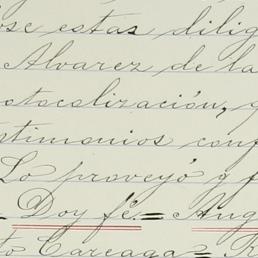 ose estas dilig
Alvarez de la
otocolización, q
stimonios conf
Lo proveyó y f
= Doy fé. = Ang
to Careaga = R